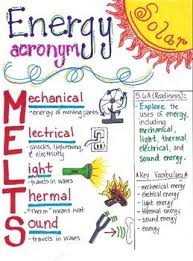 Energy
acronym
Solar
Mechanical
-energy of moving parts
Electrical
-shocks, lightening,
& electricity
Light
-travels in waves
Thermal
-"therm" means heat
Sound
-travels in waves
5.6A (Readiness):
Explore the
uses of energy,
including
mechanical,
light, thermal,
electrical, and
sound energy.
Key Vocabulary:
-mechanical energy
-electrical energy
-light energy
-thermal energy
-sound energy
-energy